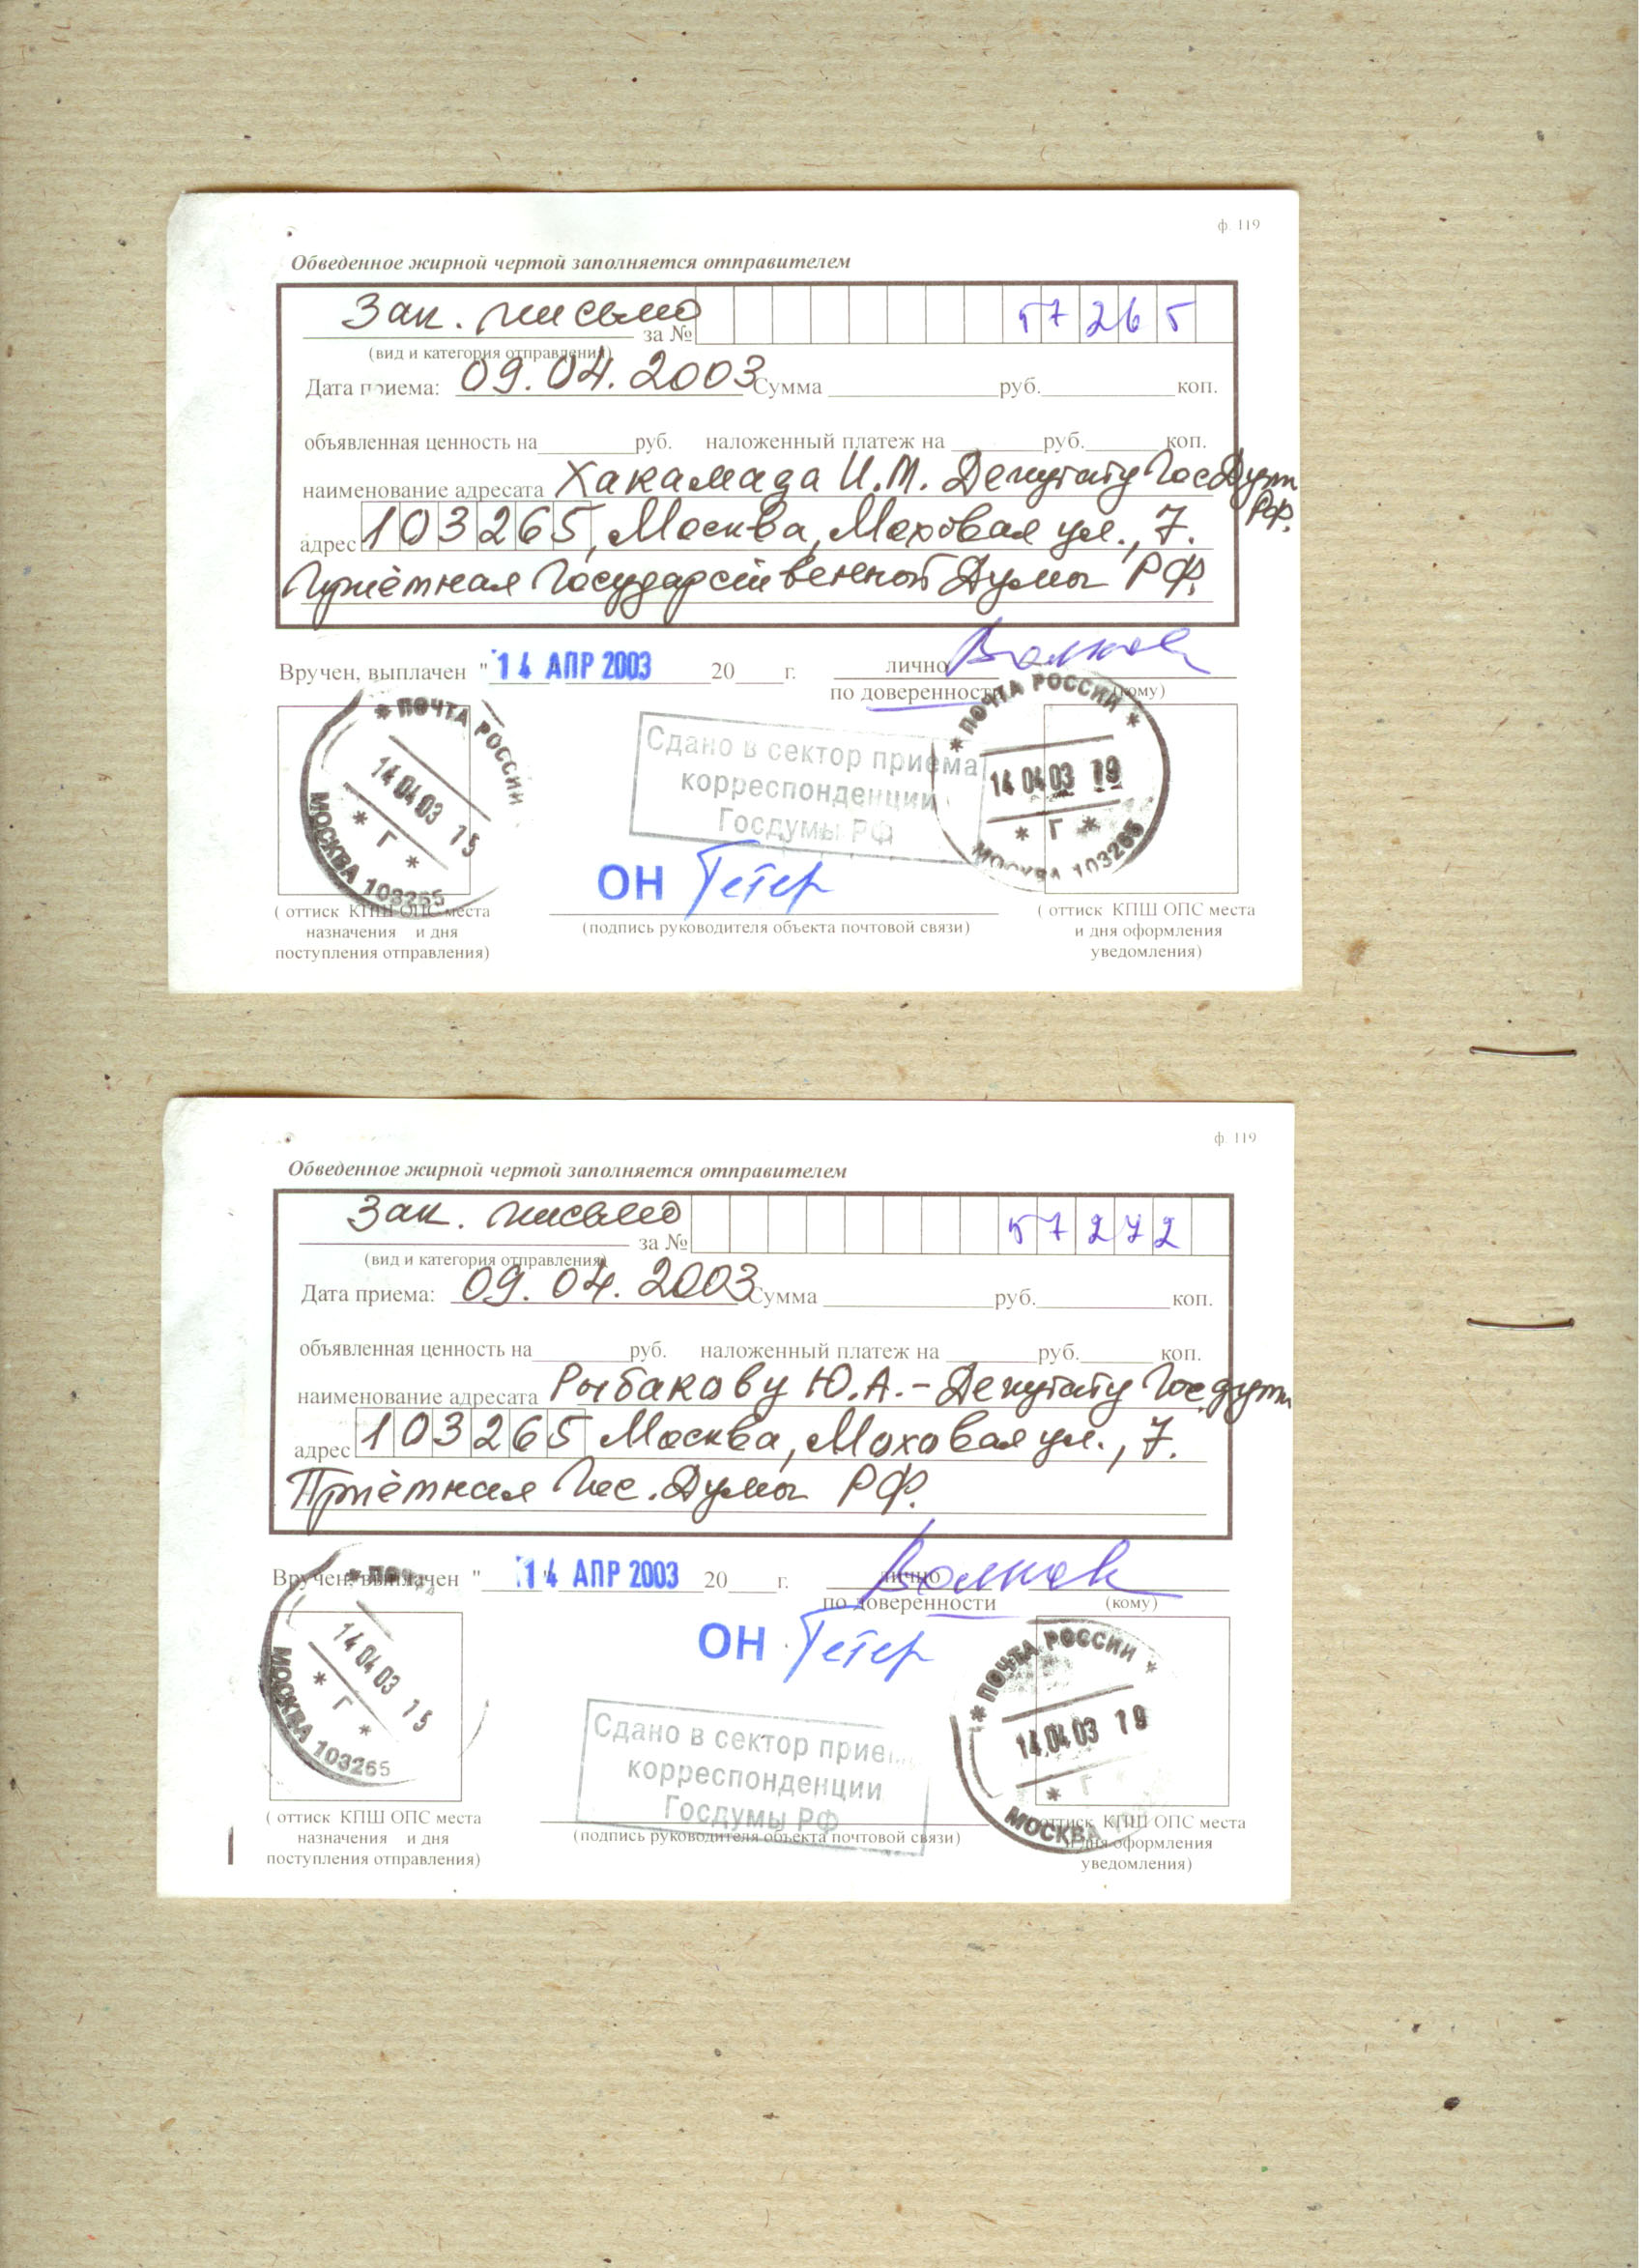 ф. 119
Обведенное жирной чертой заполняется отправителем
Зак. письмо за № 57265
(вид и категория отправления)
Дата приема: 09.04.2003 Сумма руб. коп.
объявленная ценность на руб. наложенный платеж на руб. коп.
наименование адресата Хакамада И.М. Депутату ГосДумы РФ.
адрес 103265, Москва, Моховая ул., 7.
Приёмная Государственной Думы РФ.
Вручен, выплачен "14 АПР 2003 20 г. лично Волков
по доверенности (кому)
* ПОЧТА РОССИИ
14 04 03 15
* Г *
МОСКВА 103265
Сдано в сектор приема
корреспонденции
Госдумы РФ
* ПОЧТА РОССИИ *
14 04 03 19
* Г *
МОСКВА 103265
ОН
( оттиск КПШ ОПС места
назначения и дня
поступления отправления)
(подпись руководителя объекта почтовой связи)
( оттиск КПШ ОПС места
и дня оформления
уведомления)
ф. 119
Обведенное жирной чертой заполняется отправителем
Зак. письмо за № 57272
(вид и категория отправления)
Дата приема: 09.04.2003 Сумма руб. коп.
объявленная ценность на руб. наложенный платеж на руб. коп.
наименование адресата Рыбакову Ю.А. - Депутату Госдумы
адрес 103265 Москва, Моховая ул., 7.
Приёмная Гос. Думы РФ.
Вручен, выплачен "14" АПР 2003 20 г. лично Волков
по доверенности (кому)
14 04 03 15
* Г *
МОСКВА 103265
ОН
* ПОЧТА РОССИИ *
14 04 03 19
* Г
МОСКВА
Сдано в сектор
корреспонденции
Госдумы РФ
( оттиск КПШ ОПС места
назначения и дня
поступления отправления)
(подпись руководителя объекта почтовой связи)
оттиск КПШ ОПС места
и дня оформления
уведомления)